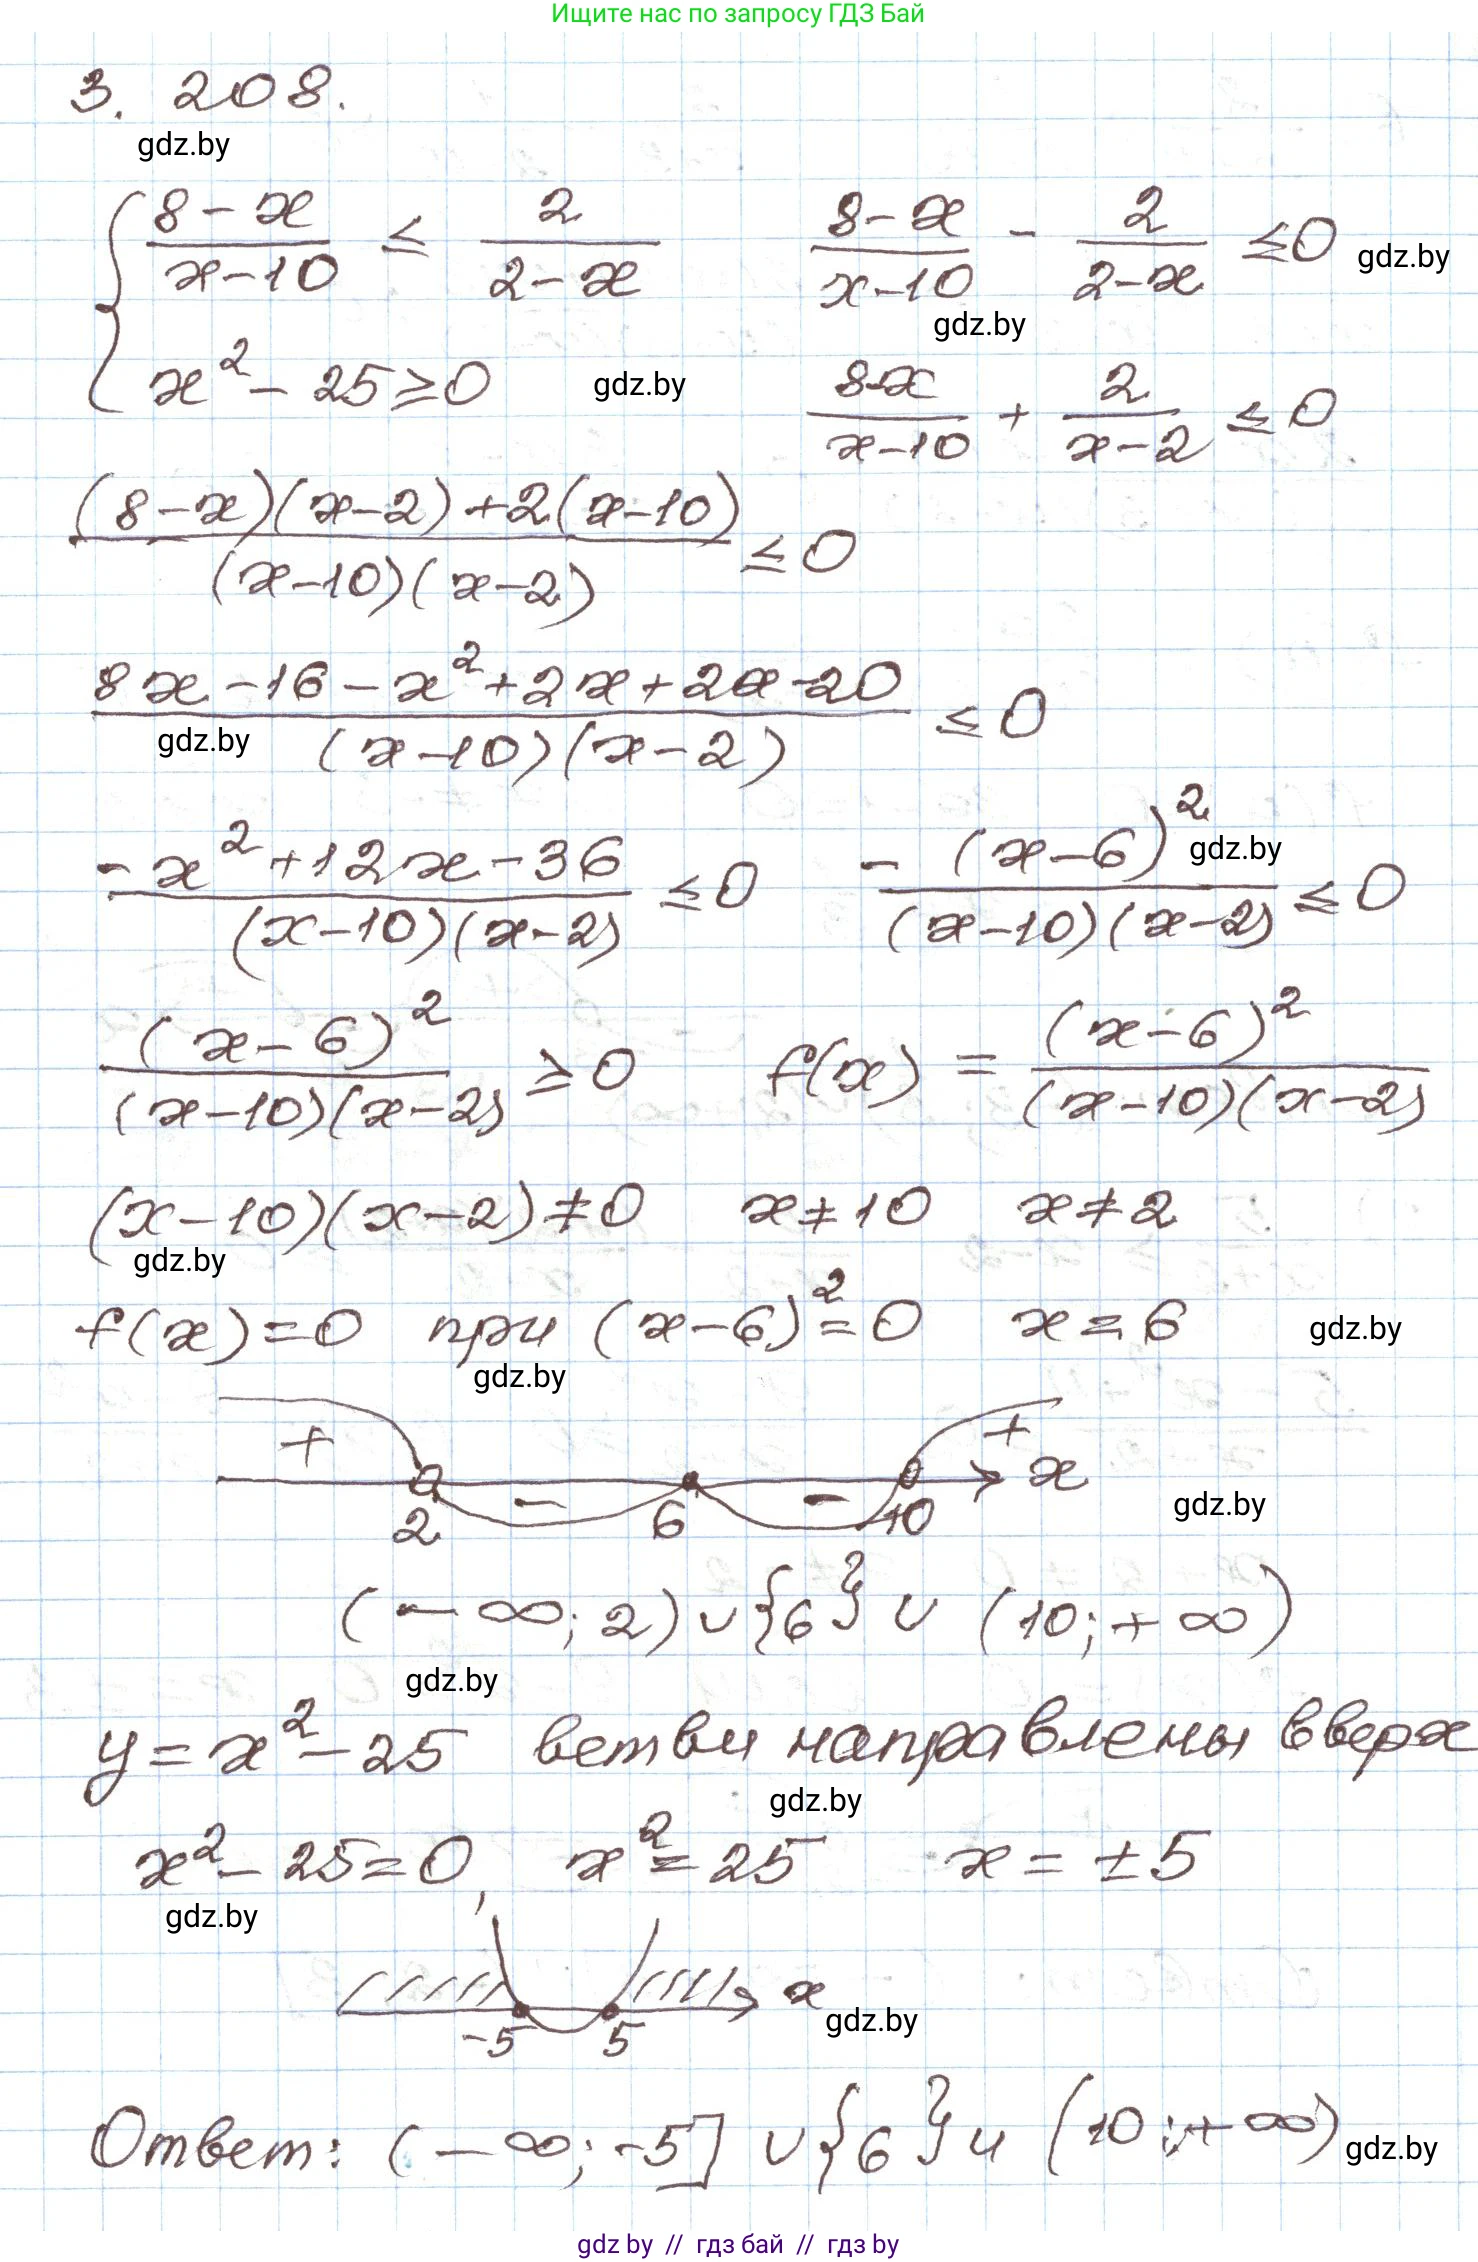 Ищите нас по запросу ГДЗ Бай
3. 208.
gdz.by
{ (8-x)/(x-10) ≤ 2/(2-x)   (8-x)/(x-10) - 2/(2-x) ≤0 gdz.by
gdz.by
x² - 25≥0 gdz.by (8-x)/(x-10) + 2/(x-2) ≤0
((8-x)(x-2)+2(x-10))/((x-10)(x-2)) ≤0
(8x-16-x²+2x+2x-20)/((x-10)(x-2)) ≤0
gdz.by
(-x²+12x-36)/((x-10)(x-2)) ≤0   (-(x-6)²)/((x-10)(x-2)) ≤0
gdz.by
(x-6)²/((x-10)(x-2)) ≥0   f(x) = (x-6)²/((x-10)(x-2))
(x-10)(x-2)≠0 x≠10 x≠2
gdz.by
f(x)=0 при (x-6)²=0 x=6 gdz.by
gdz.by
+ - - + x
2 6 10 gdz.by
(-∞; 2)∪{6}∪ (10;+∞)
gdz.by
y=x²-25 ветви направлены вверх
gdz.by
x²-25=0, x²=25 x=±5
gdz.by
x
-5 5 gdz.by
Ответ: (-∞; -5] ∪{6}∪ (10;+∞) gdz.by
gdz by // гдз бай // гдз by